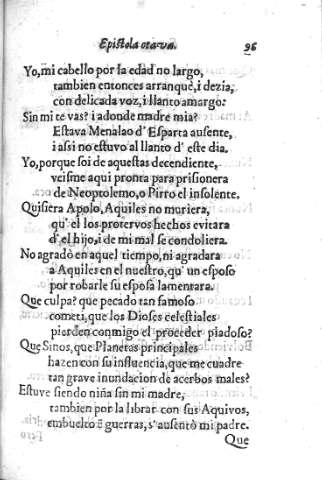 Epistola otava. 96
Yo, mi cabello por la edad no largo,
tambien entonces arranquè, i dezia,
con delicada voz, i llanto amargo:
Sin mi te vas? i adonde madre mia?
Estava Menalao d' Esparta ausente,
i asi no estuvo al llanto d' este dia.
Yo, porque soi de aquestas decendiente,
veisme aqui pronta para prisionera
de Neoptolemo, o Pirro el insolente.
Quisiera Apolo, Aquiles no muriera,
qu' el los protervos hechos evitara
d' el hijo, i de mi mal se condoliera.
No agradò en aquel tiempo, ni agradara
a Aquiles en el nuestro, qu' un esposo
por robarle su esposa lamentara.
Que culpa? que pecado tan famoso
cometi, que los Dioses celestiales
pierden conmigo el proceder piadoso?
Que Sinos, que Planetas principales
hazen con su influencia, que me cuadre
tan grave inundacion de acerbos males?
Estuve siendo niña sin mi madre,
tambien por la librar con sus Aquivos,
embuelto ẽ guerras, s' ausentò mi padre.
Que